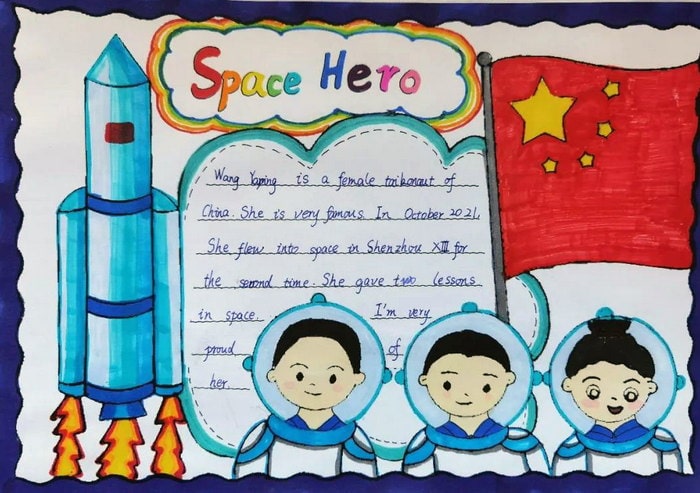 Space Hero
Wang Yaping is a female taikonaut of
China. She is very famous. In October 2021,
She flew into space in Shenzhou XIII for
the second time. She gave two lessons
in space. I'm very
proud of
her.